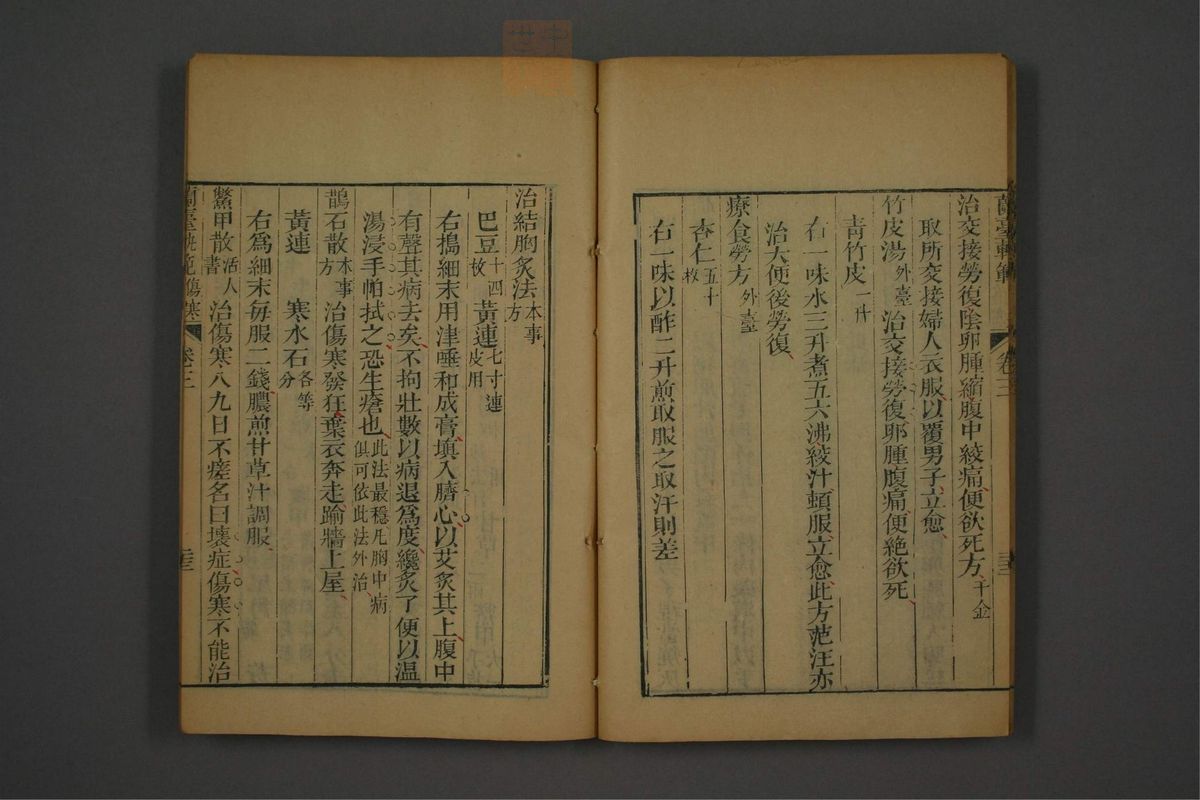 蘭臺軌範 卷三
治交接勞復陰卵腫縮腹中絞痛便欲死方千金
取所交接婦人衣服以覆男子立愈
竹皮湯外臺治交接勞復卵腫腹痛便絕欲死
青竹皮一升
右一味水三升煮五六沸絞汁頓服立愈此方范汪亦
治大便後勞復
療食勞方外臺
杏仁五十枚
右一味以酢二升煎取服之取汗則差
治結胸灸法本事方
巴豆十四枚 黃連七寸連皮用
右搗細末用津唾和成膏填入臍心以艾灸其上腹中
有聲其病去矣不拘壯數以病退爲度纔灸了便以温
湯浸手帕拭之恐生瘡也此法最穩凡胸中病俱可依此法外治
鵲石散本事方治傷寒發狂棄衣奔走踰牆上屋
黃連 寒水石各等分
右爲細末每服二錢膿煎甘草汁調服
鱉甲散活人書治傷寒八九日不瘥名曰壞症傷寒不能治
蘭臺軌範傷寒 卷三